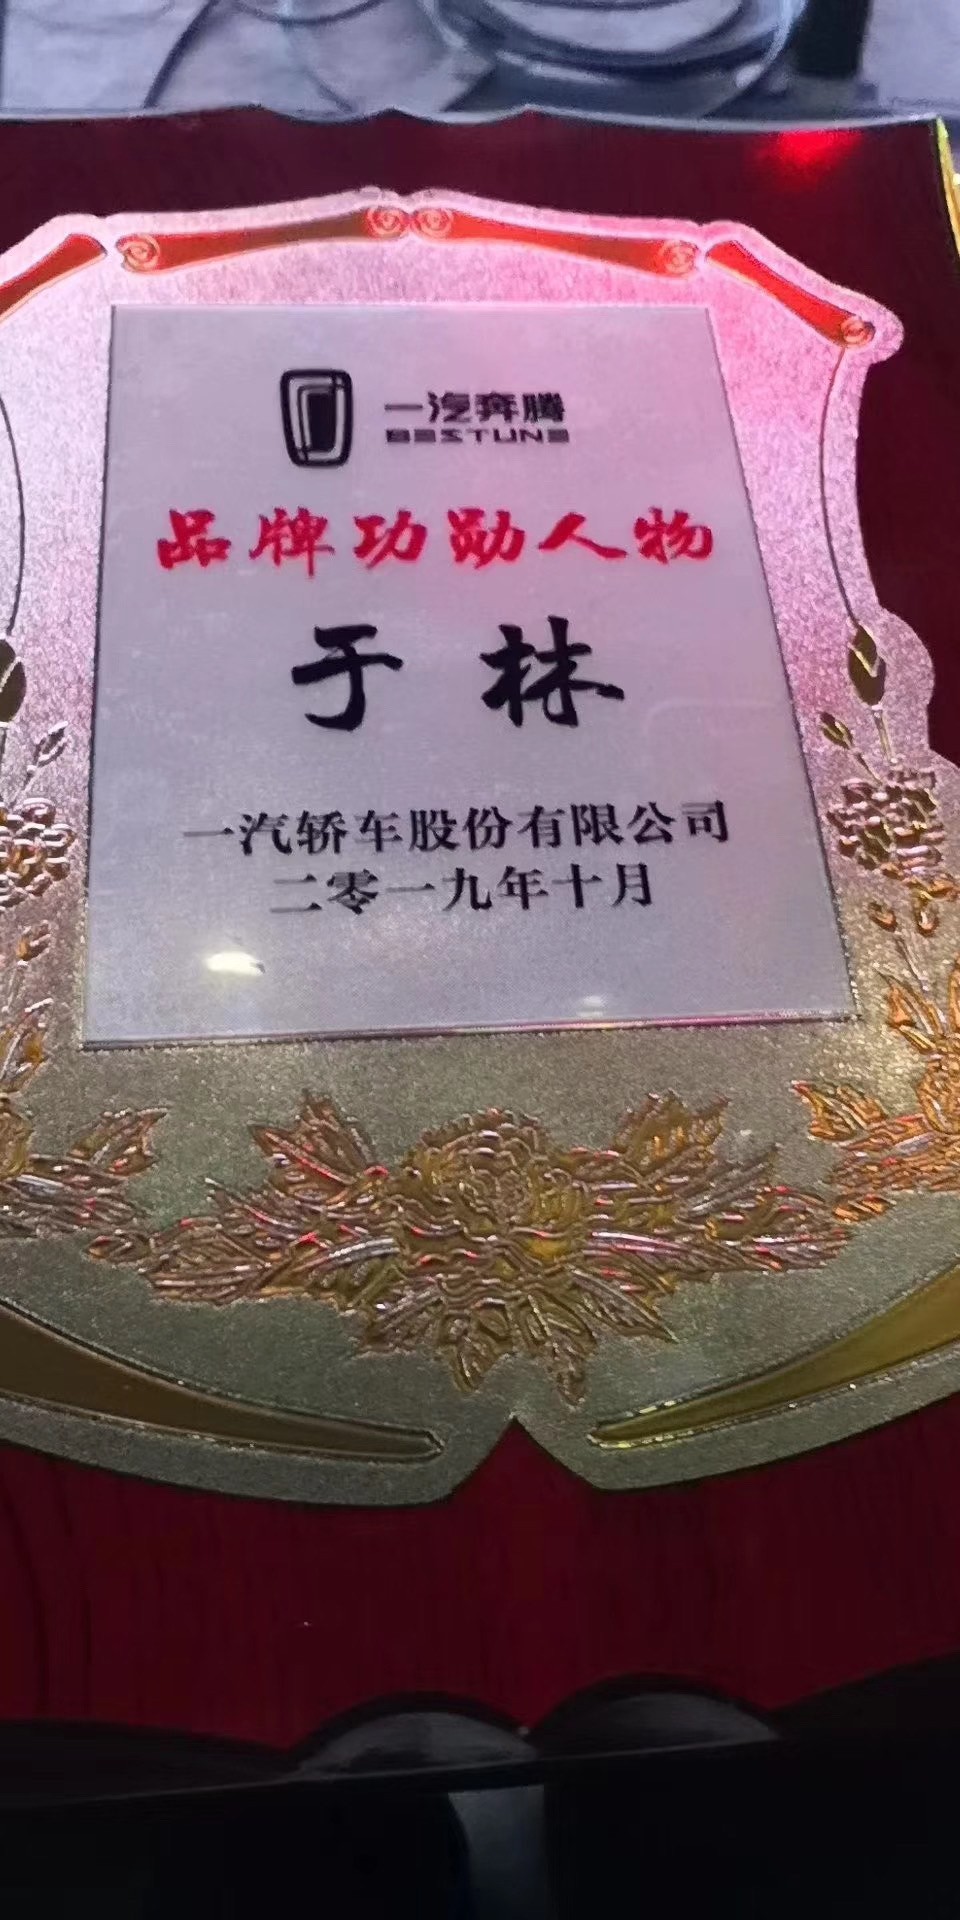 一汽奔腾
BESTUNE
品牌功勋人物
于林
一汽轿车股份有限公司
二零一九年十月